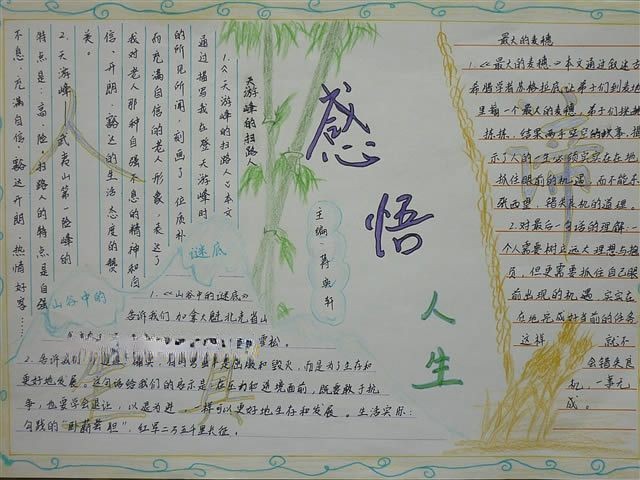 感悟人生
主编：蒋
天游峰的扫路人
1.《天游峰的扫路人》本文
通过描写我在登天游峰时
的所见所闻，刻画了一位质朴
而充满自信的老人形象，表达了
我对老人那种自强不息的精神和自
信、开朗、豁达的生活态度的赞
美。
2.天游峰：武夷山第一险峰的
特点是：高、险，扫路人的特点是自强
不息、充满自信、豁达开朗、热情好客……
山谷中的谜底
1.《山谷中的谜底》
告诉我们加拿大魁北克省山
雪松。
2.告诉我们
和毁灭，而是为了生存和
更好地发展。这句话给我们的启示是：在压力和逆境面前，既要敢于抗
争，也要学会退让，以退为进，一样可以更好地生存和发展。生活实际：
勾践的“卧薪尝胆”，红军二万五千里长征。
最大的麦穗
1.《最大的麦穗》本文通过叙述古
希腊学者苏格拉底让弟子们到麦地
里摘一个最大的麦穗，弟子们挑挑
拣拣，结果两手空空的故事，揭
示了人的一生必须实实在在地
抓住眼前的机遇，而不能东
张西望，错失良机的道理。
2.对最后一句话的理解：一
个人需要树立远大理想与抱
负，但更需要抓住自己眼
前出现的机遇，实实在
在地完成好当前的任务
这样 就不
会错失良
机，一事无
成。